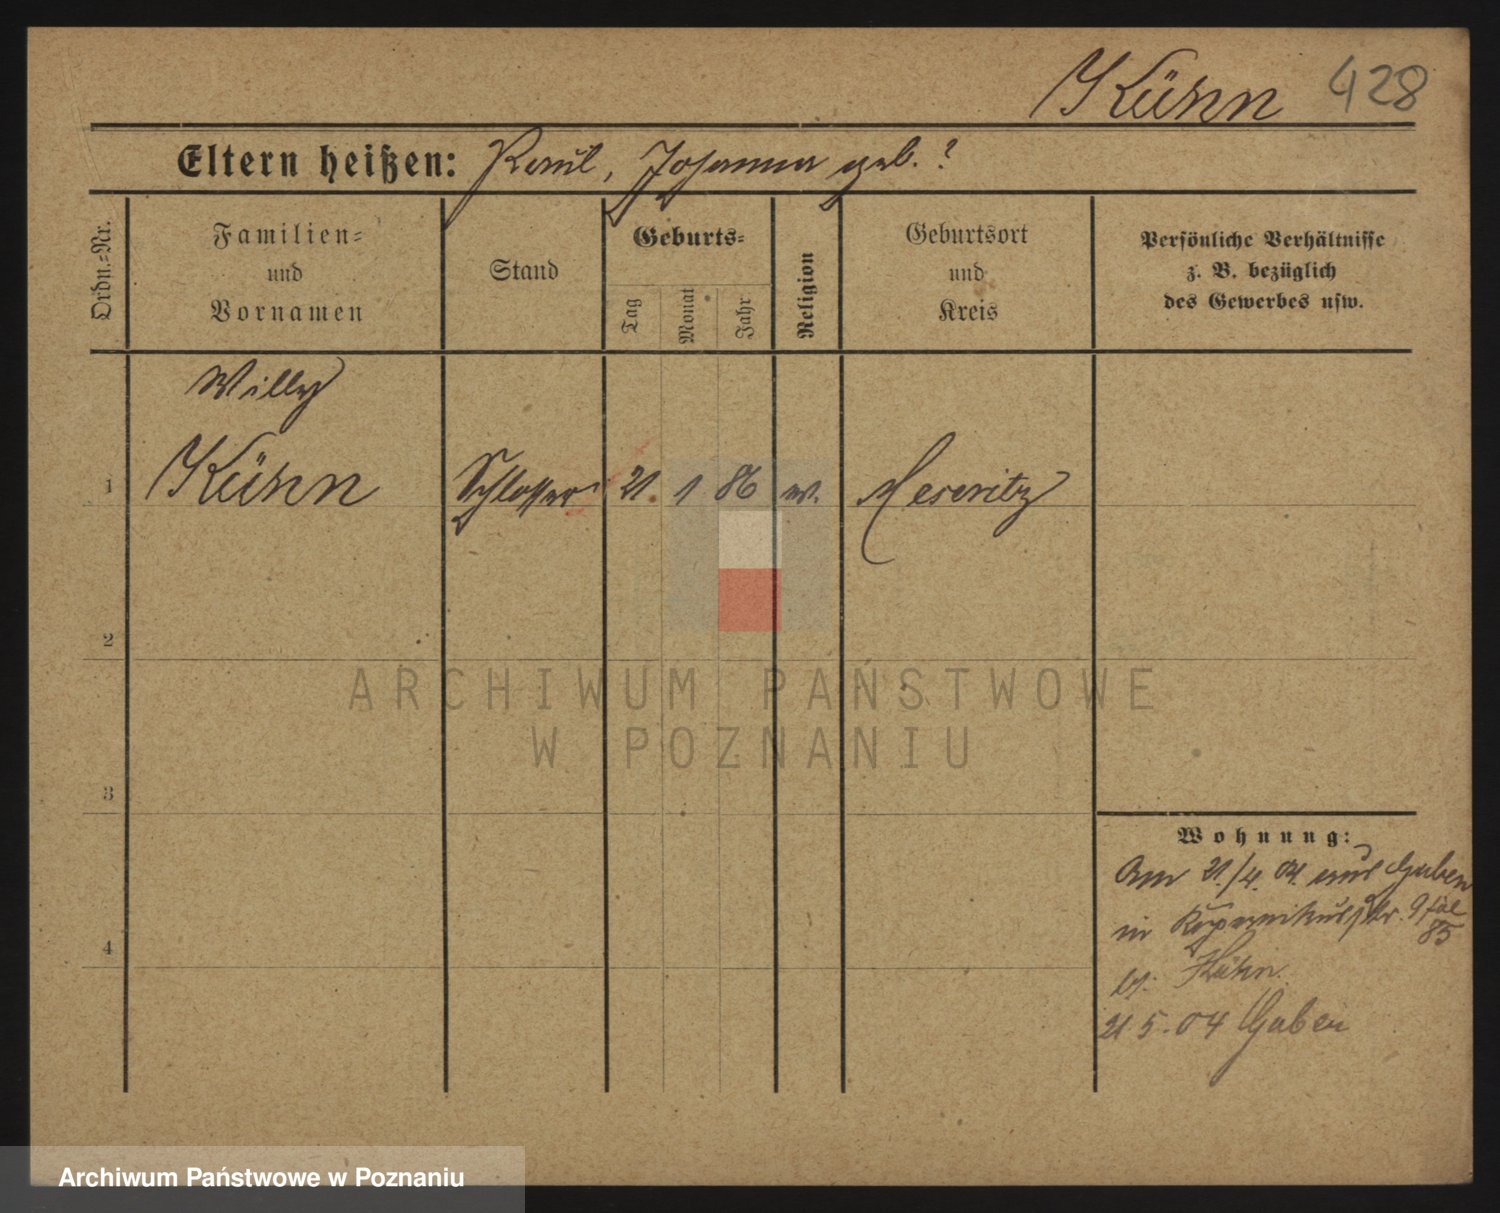 Kühn 428
Eltern heißen: Paul, Johanna geb. ?
Ordn.=Nr.
Familien=
und
Vornamen
Stand
Geburts=
Tag
Monat
Jahr
Religion
Geburtsort
und
Kreis
Persönliche Verhältnisse
z. B. bezüglich
des Gewerbes usw.
Willy
1 Kühn Schlosser 21. 1 86 Meseritz
2
3
4
ARCHIWUM PAŃSTWOWE
W POZNANIU
Wohnung:
Am 21./4. 04. aus Guben
in Kopernikusstr. 9
85
bei Kühn
21 5. 04 Guben
Archiwum Państwowe w Poznaniu